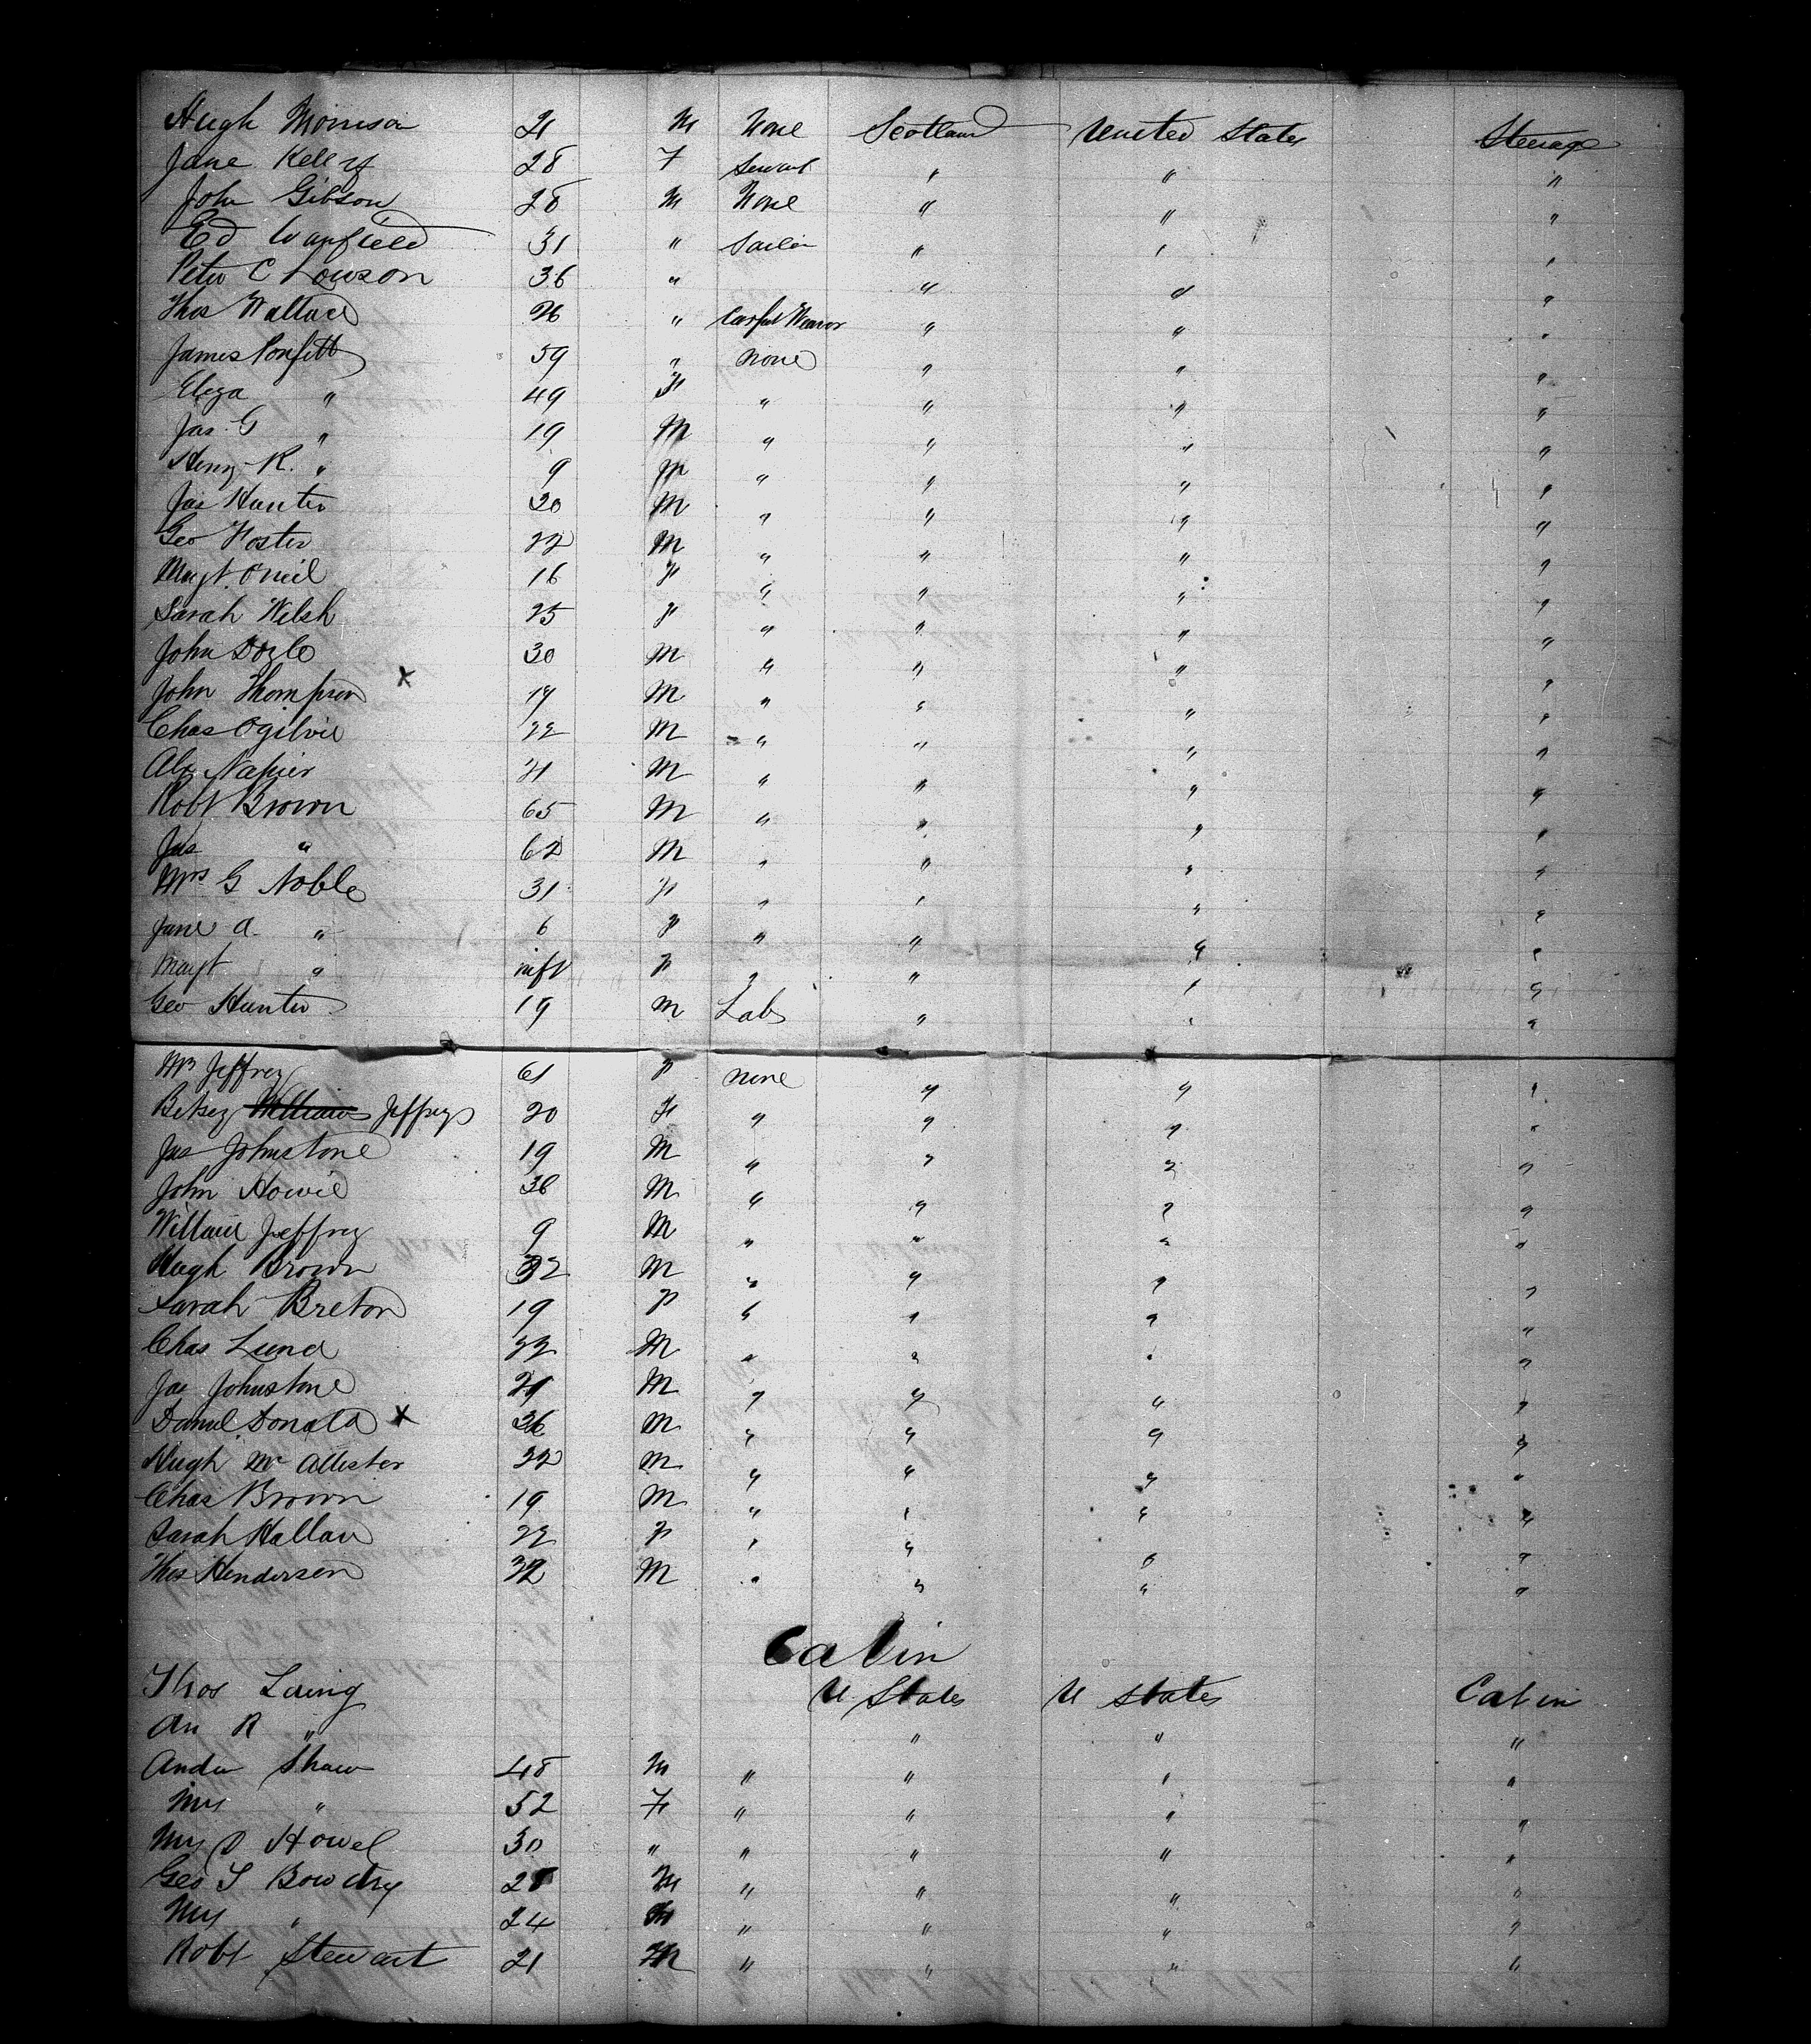 Hugh Morrison 21 M None Scotland United States Steerage
Jane Kelly 28 F Servant " " "
John Gibson 28 M None " " "
Ed Warfield 31 " Sailor " " "
Peter C Lowson 36 " " " "
Thos Wallace 26 " Carpet Weaver " " "
James Ponfitt 59 " none " " "
Eliza " 49 F " " " "
Jas. G " 19 M " " " "
Henry R. " 9 M " " " "
Jas Hunter 20 M " " " "
Geo Foster 22 M " " " "
Magt O'neil 16 F " " " "
Sarah Welsh 25 F " " " "
John Doyle 30 M " " " "
John Thompson x 19 M " " " "
Chas Ogilvie 22 M " " " "
Alx Napier 21 M " " " "
Robt Brown 65 M " " " "
Jas " 62 M " " " "
Mrs G Noble 31 F " " " "
Jane A. " 6 F " " " "
Magt " inft F " " " "
Geo Hunter 19 M Lab " " "
Mrs Jeffrey 61 F none " " "
Betsey Jeffrey 20 F " " " "
Jas Johnstone 19 M " " " "
John Howie 36 M " " " "
William Jeffrey 9 M " " " "
Hugh Brown 32 M " " " "
Sarah Breton 19 F " " " "
Chas Lund 22 M " " " "
Jas Johnstone 21 M " " " "
Daniel Donald x 36 M " " " "
Hugh Mc Allister 22 M " " " "
Chas Brown 19 M " " " "
Sarah Hallan 22 F " " " "
Thos Henderson 32 M " " " "
Cabin
Thos Laing U States U States Cabin
An R " " " "
Andw Shaw 48 M " " " "
Mrs " 52 F " " " "
Mrs D Howel 30 " " " " "
Geo S Bowdry 28 M " " " "
Mrs " 24 F " " " "
Robt Stewart 21 M " " " "